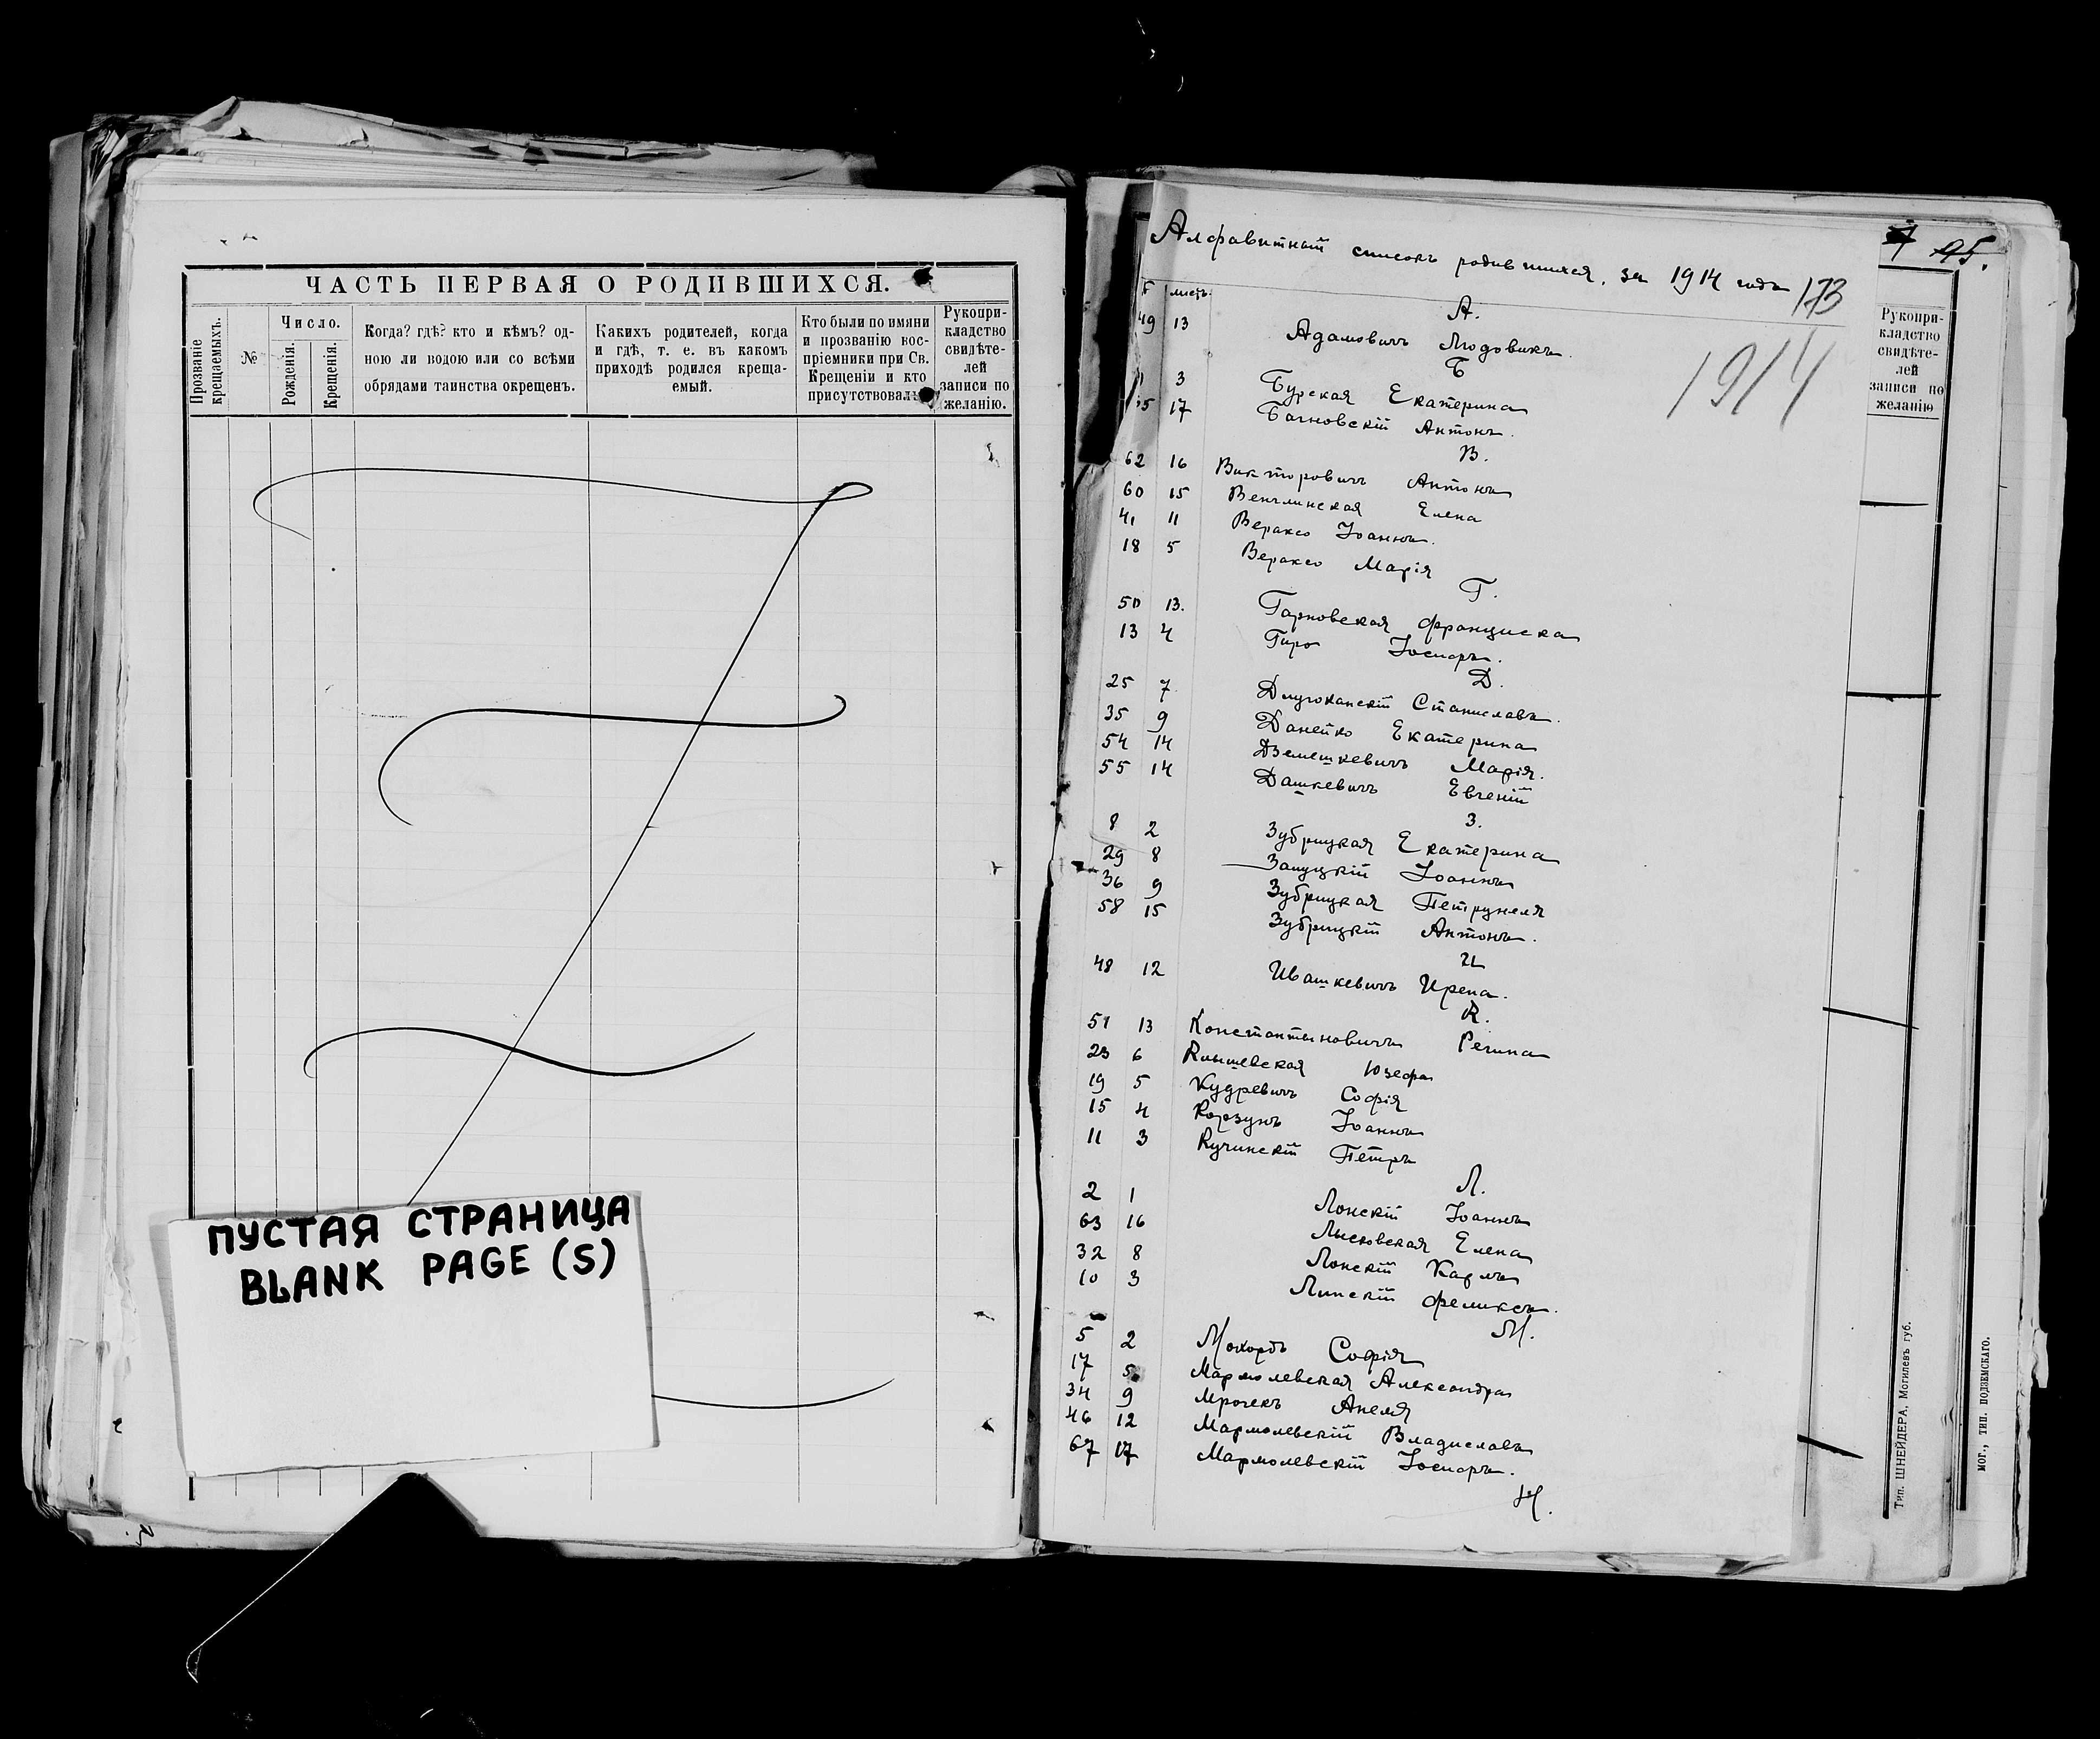 ЧАСТЬ ПЕРВАЯ О РОДИВШИХСЯ.
Прозваніе крещаемыхъ.
№
Число.
Рожденія.
Крещенія.
Когда? гдѣ? кто и кѣмъ? од-
ною ли водою или со всѣми
обрядами таинства окрещенъ.
Какихъ родителей, когда
и гдѣ, т. е. въ какомъ
приходѣ родился креща-
емый.
Кто были по имяни
и прозванію вос-
пріемники при Св.
Крещеніи и кто
присутствовалъ
Рукопри-
кладство
свидѣте-
лей
записи по
желанію.
ПУСТАЯ СТРАНИЦА
BLANK PAGE (S)
Алфавитный списокъ родившихся, за 1914 годъ 173
листъ
А.
49 13 Адамовичъ Людовикъ.
1914
Б
3 Бурская Екатерина
17 Антонъ.
В.
62 16 Викторовичъ Антонъ
60 15 Венглинская Елена
41 11 Вераксо Іоаннъ.
18 5 Вераксо Марія
Г.
50 13. Франциска
13 4 Гиро Іосифъ.
Д.
25 7 Станиславъ.
35 9 Данейко Екатерина
54 14 Дземешкевичъ Марія.
55 14 Дашкевичъ Евгеній
З.
8 2 Зубрицкая Екатерина
29 8 Іоаннъ
36 9 Зубрицкая Петрунеля
58 15 Зубрицкій Антонъ.
И
48 12 Ивашкевичъ Ирена.
К.
51 13 Константиновичъ Регина
23 6 Юзефа
19 5 Кудревичъ Софія
15 4 Корзунъ Іоаннъ
11 3 Кучинскій Петръ
Л.
2 1 Лонскій Іоаннъ
63 16 Лысковская Елена
32 8 Лонскій Карлъ
10 3 Липскій Феликсъ.
М.
5 2 Мохортъ Софія
17 5 Мармолевская Александра
34 9 Мрочекъ Анеля
46 12 Мармолевскій Владиславъ
67 17 Мармолевскій Іосифъ.
Н.
95.
Рукопри-
кладство
свидѣте-
лей
записи по
желанію
Тип. ШНЕЙДЕРА, Могилевъ губ.
МОГ., ТИП. ПОДЗЕМСКАГО.